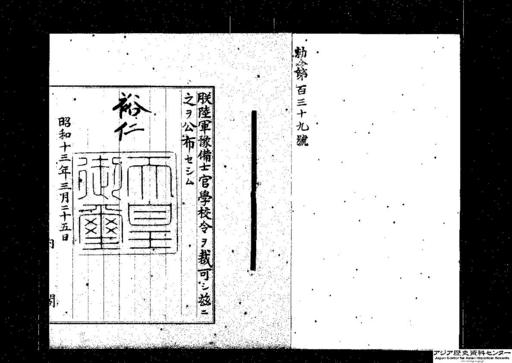 勅令第百三十九號
朕陸軍豫備士官學校令ヲ裁可シ茲ニ
之ヲ公布セシム
裕仁
天皇御璽
昭和十三年三月二十五日
内閣
アジア歴史資料センター
Japan Center for Asian Historical Records